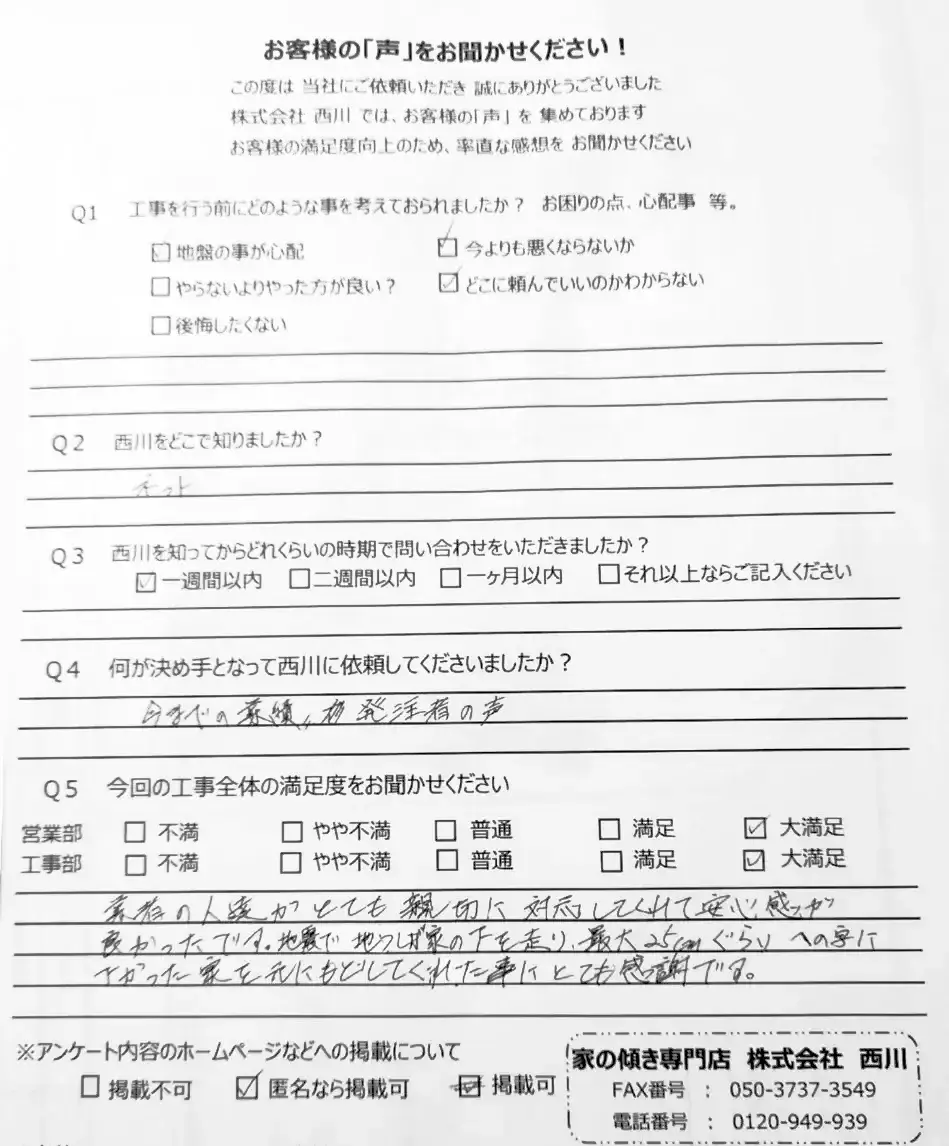 お客様の「声」をお聞かせください！
この度は 当社にご依頼いただき 誠にありがとうございました
株式会社 西川 では、お客様の「声」を 集めております
お客様の満足度向上のため、率直な感想を お聞かせください
Q1 工事を行う前にどのような事を考えておられましたか？ お困りの点、心配事 等。
☑ 地盤の事が心配 ☑ 今よりも悪くならないか
□ やらないよりやった方が良い？ ☑ どこに頼んでいいのかわからない
□ 後悔したくない
Q2 西川をどこで知りましたか？
ネット
Q3 西川を知ってからどれくらいの時期で問い合わせをいただきましたか？
☑ 一週間以内 □ 二週間以内 □ 一ヶ月以内 □ それ以上ならご記入ください
Q4 何が決め手となって西川に依頼してくださいましたか？
今までの業績、発注者の声
Q5 今回の工事全体の満足度をお聞かせください
営業部 □ 不満 □ やや不満 □ 普通 □ 満足 ☑ 大満足
工事部 □ 不満 □ やや不満 □ 普通 □ 満足 ☑ 大満足
の人達がとても親切に対応してくれて安心感が
良かったです。地震で地われが家の下を走り、最大25cmぐらい への字に
さがった家を元にもどしてくれた事にとても感謝です。
※アンケート内容のホームページなどへの掲載について
□ 掲載不可 ☑ 匿名なら掲載可 ☑ 掲載可
家の傾き専門店 株式会社 西川
FAX番号 ： 050-3737-3549
電話番号 ： 0120-949-939